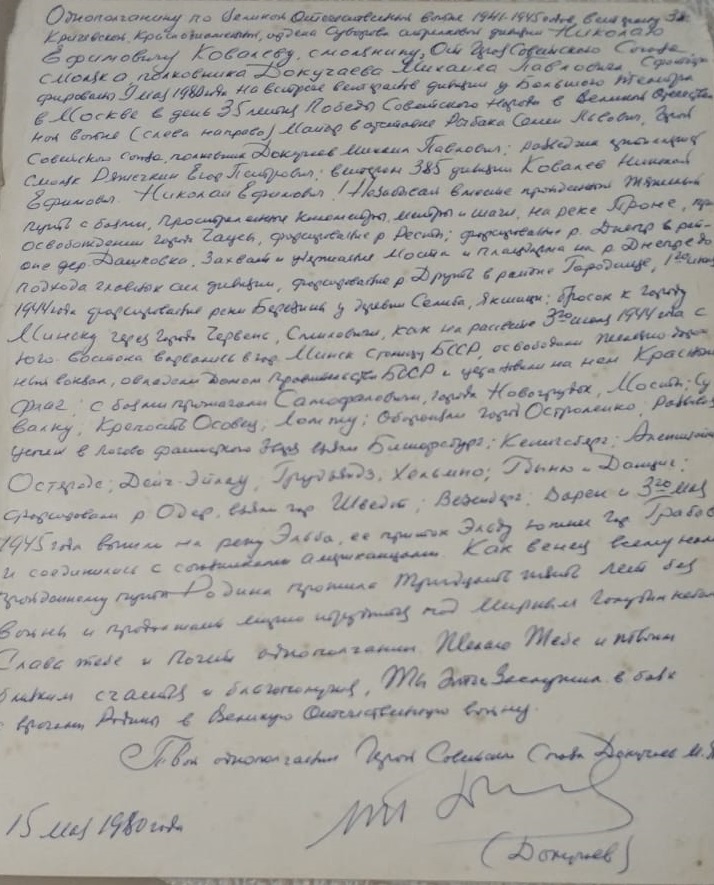 Однополчанину по Великой Отечественной войне 1941-1945 годов, ветерану
Кричевской, Краснознаменной, ордена Суворова стрелковой дивизии Николаю
Ефимовичу Ковалеву, смолянину, От Героя Советского Союза
смоляка, полковника Докучаева Михаила Павловича. Сфотогра-
фированы 9 мая 1980 года на встрече ветеранов дивизии у Большого театра
в Москве в день 35 летия Победы Советского Народа в Великой Отечествен
ной войне (слева направо) Майор в отставке Рыбака Семен Львович, Герой
Советского Союза, полковник Докучаев Михаил Павлович; разведчик
смоляк Егор Петрович; ветеран 385 дивизии Ковалев Николай
Ефимович. Николай Ефимович! Незабываем вместе пройденный тяжелый
путь с боями, простреленные километры, метры и шаги, на реке Проне, при
освобождении города Чаусы, форсирование р. Ресты; форсирование р. Днепр в рай-
оне дер. Дашковка, Захват и удержание моста и плацдарма на р. Днепре до
подхода главных сил дивизии, форсирование р. Друть в районе Городище, 1го июля
1944 года форсирование реки Березины у деревни Селиба, Якшицы; бросок к городу
Минску через города Червень, Смиловичи, как на рассвете 3го июля 1944 года с
юго-востока ворвались в гор. Минск столицу БССР, освободили железнодорож
ный вокзал, овладели Домом Правительства БССР и установили на нем Красный
флаг; с боями города Новогрудок, Мосты; Су
валку; Крепость Осовец, Ломжу; Обороняли город Остроленко,
успех в логово фашистского зверя взяли Бишофсбург; Кенигсберг; Алленштайн
Остероде; Дейч-Эйлау, Грудзяндз, Хельмно; Гдыню и Данциг;
форсировали р. Одер, взяли гор. Шведт; Варен и 3го мая
1945 года вышли на реку Эльба, ее приток Эльду южнее гор. Грабов
и соединились с союзниками американцами. Как венец всему нами
пройденному пути Родина прожила тридцать пять лет без
войны и продолжает мирно трудиться под мирным голубым небом
Слава тебе и почет однополчанин. Желаю Тебе и твоим
близким счастья и благополучия, Ты Это Заслужил в боях
с врагами Родины в Великую Отечественную войну.
Твой однополчанин Герой Советского Союза Докучаев М.П.
15 мая 1980 года
(Докучаев)